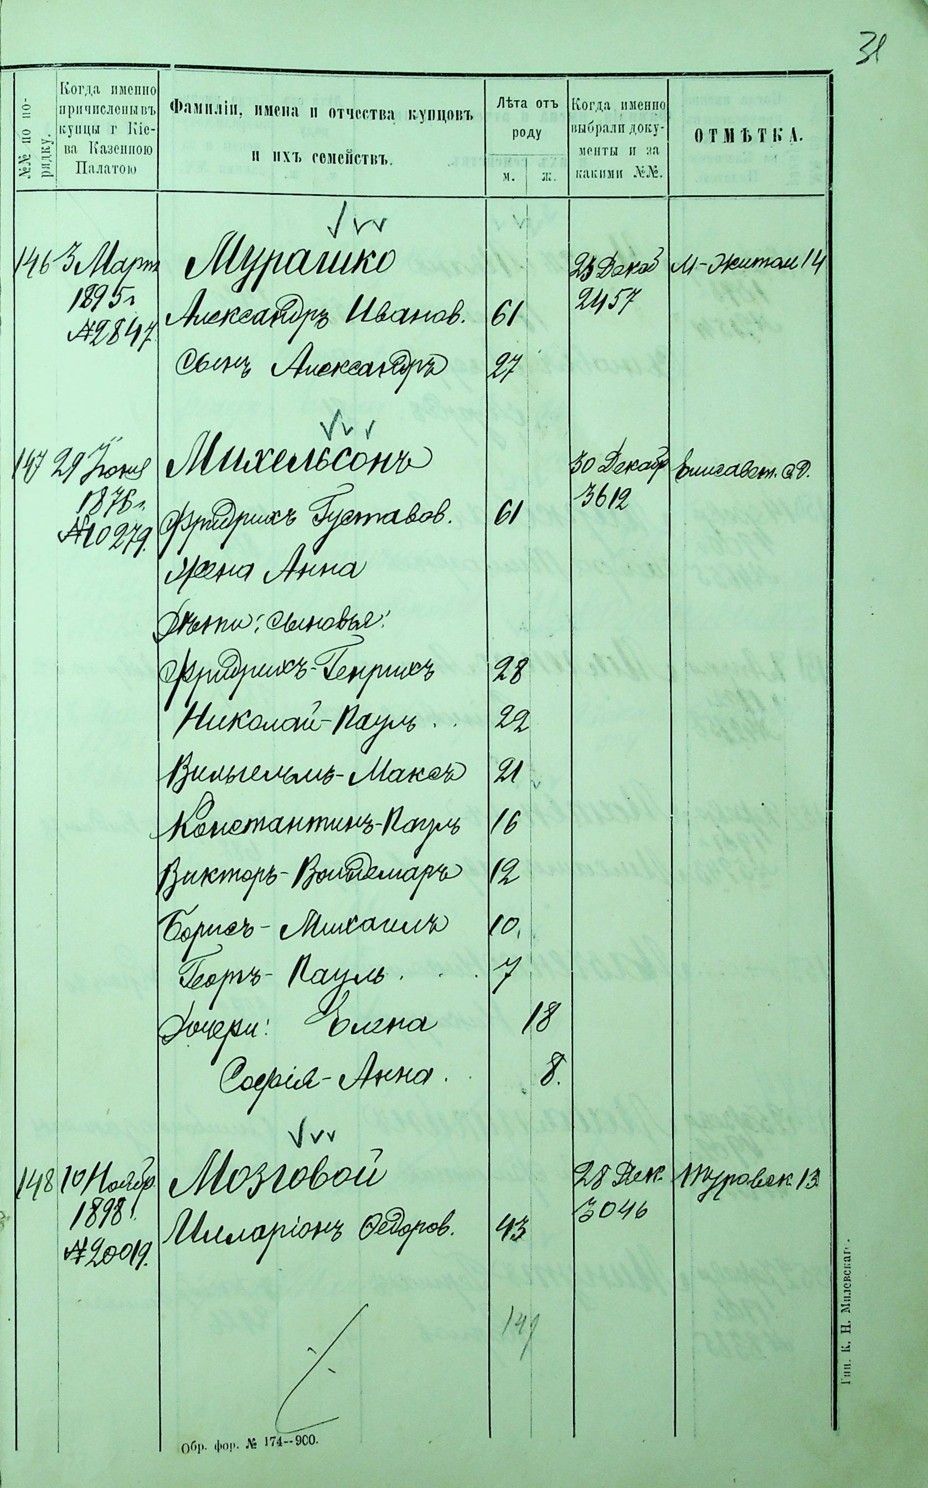 31
№№ по по-
рядку.
Когда именно
причислены въ
купцы г Кіе-
ва Казенною
Палатою
Фамиліи, имена и отчества купцовъ
и ихъ семействъ.
Лѣта отъ
роду
м. ж.
Когда именно
выбрали доку-
менты и за
какими №№.
ОТМѢТКА.
146 3 Марта Мурашко 23 Декаб М-Житом 14
1895 г. Александръ Иванов. 61 2457
№2847. сынъ Александръ 27
147 29 Іюня Михельсонъ 30 Декабр Елисавет. сД.
1876 г. Фридрихъ Густавов. 61 3612
№10279. жена Анна
Дѣти: сыновья:
Фридрихъ-Генрихъ 28
Николай-Пауль . . 22
Вильгельмъ-Максъ 21
Константинъ-Пауль 16
Викторъ-Волдемаръ 12
Борисъ-Михаилъ 10.
Георгъ-Пауль . . . 7
Дочери: Елена 18
Софія-Анна . 8.
148 10 Ноябр. Мозговой 28 Дек. Журавск 13
1898 г. Илларіонъ Федоров. 43 3046
№20019.
149
Обр. фор. № 174--900.
Тип. К. Н. Милевскаг .